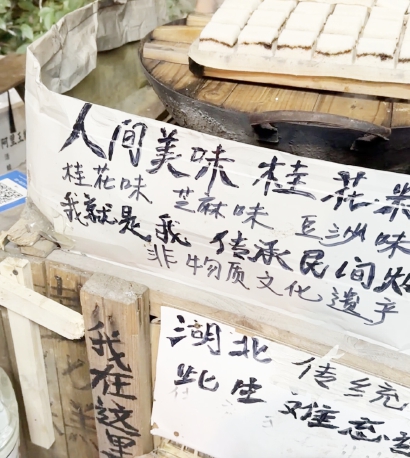 人间美味 桂花
桂花味 芝麻味 豆沙味
我就是我 传承民间
非物质文化遗产
湖北 传统
此生 难忘
我在这里